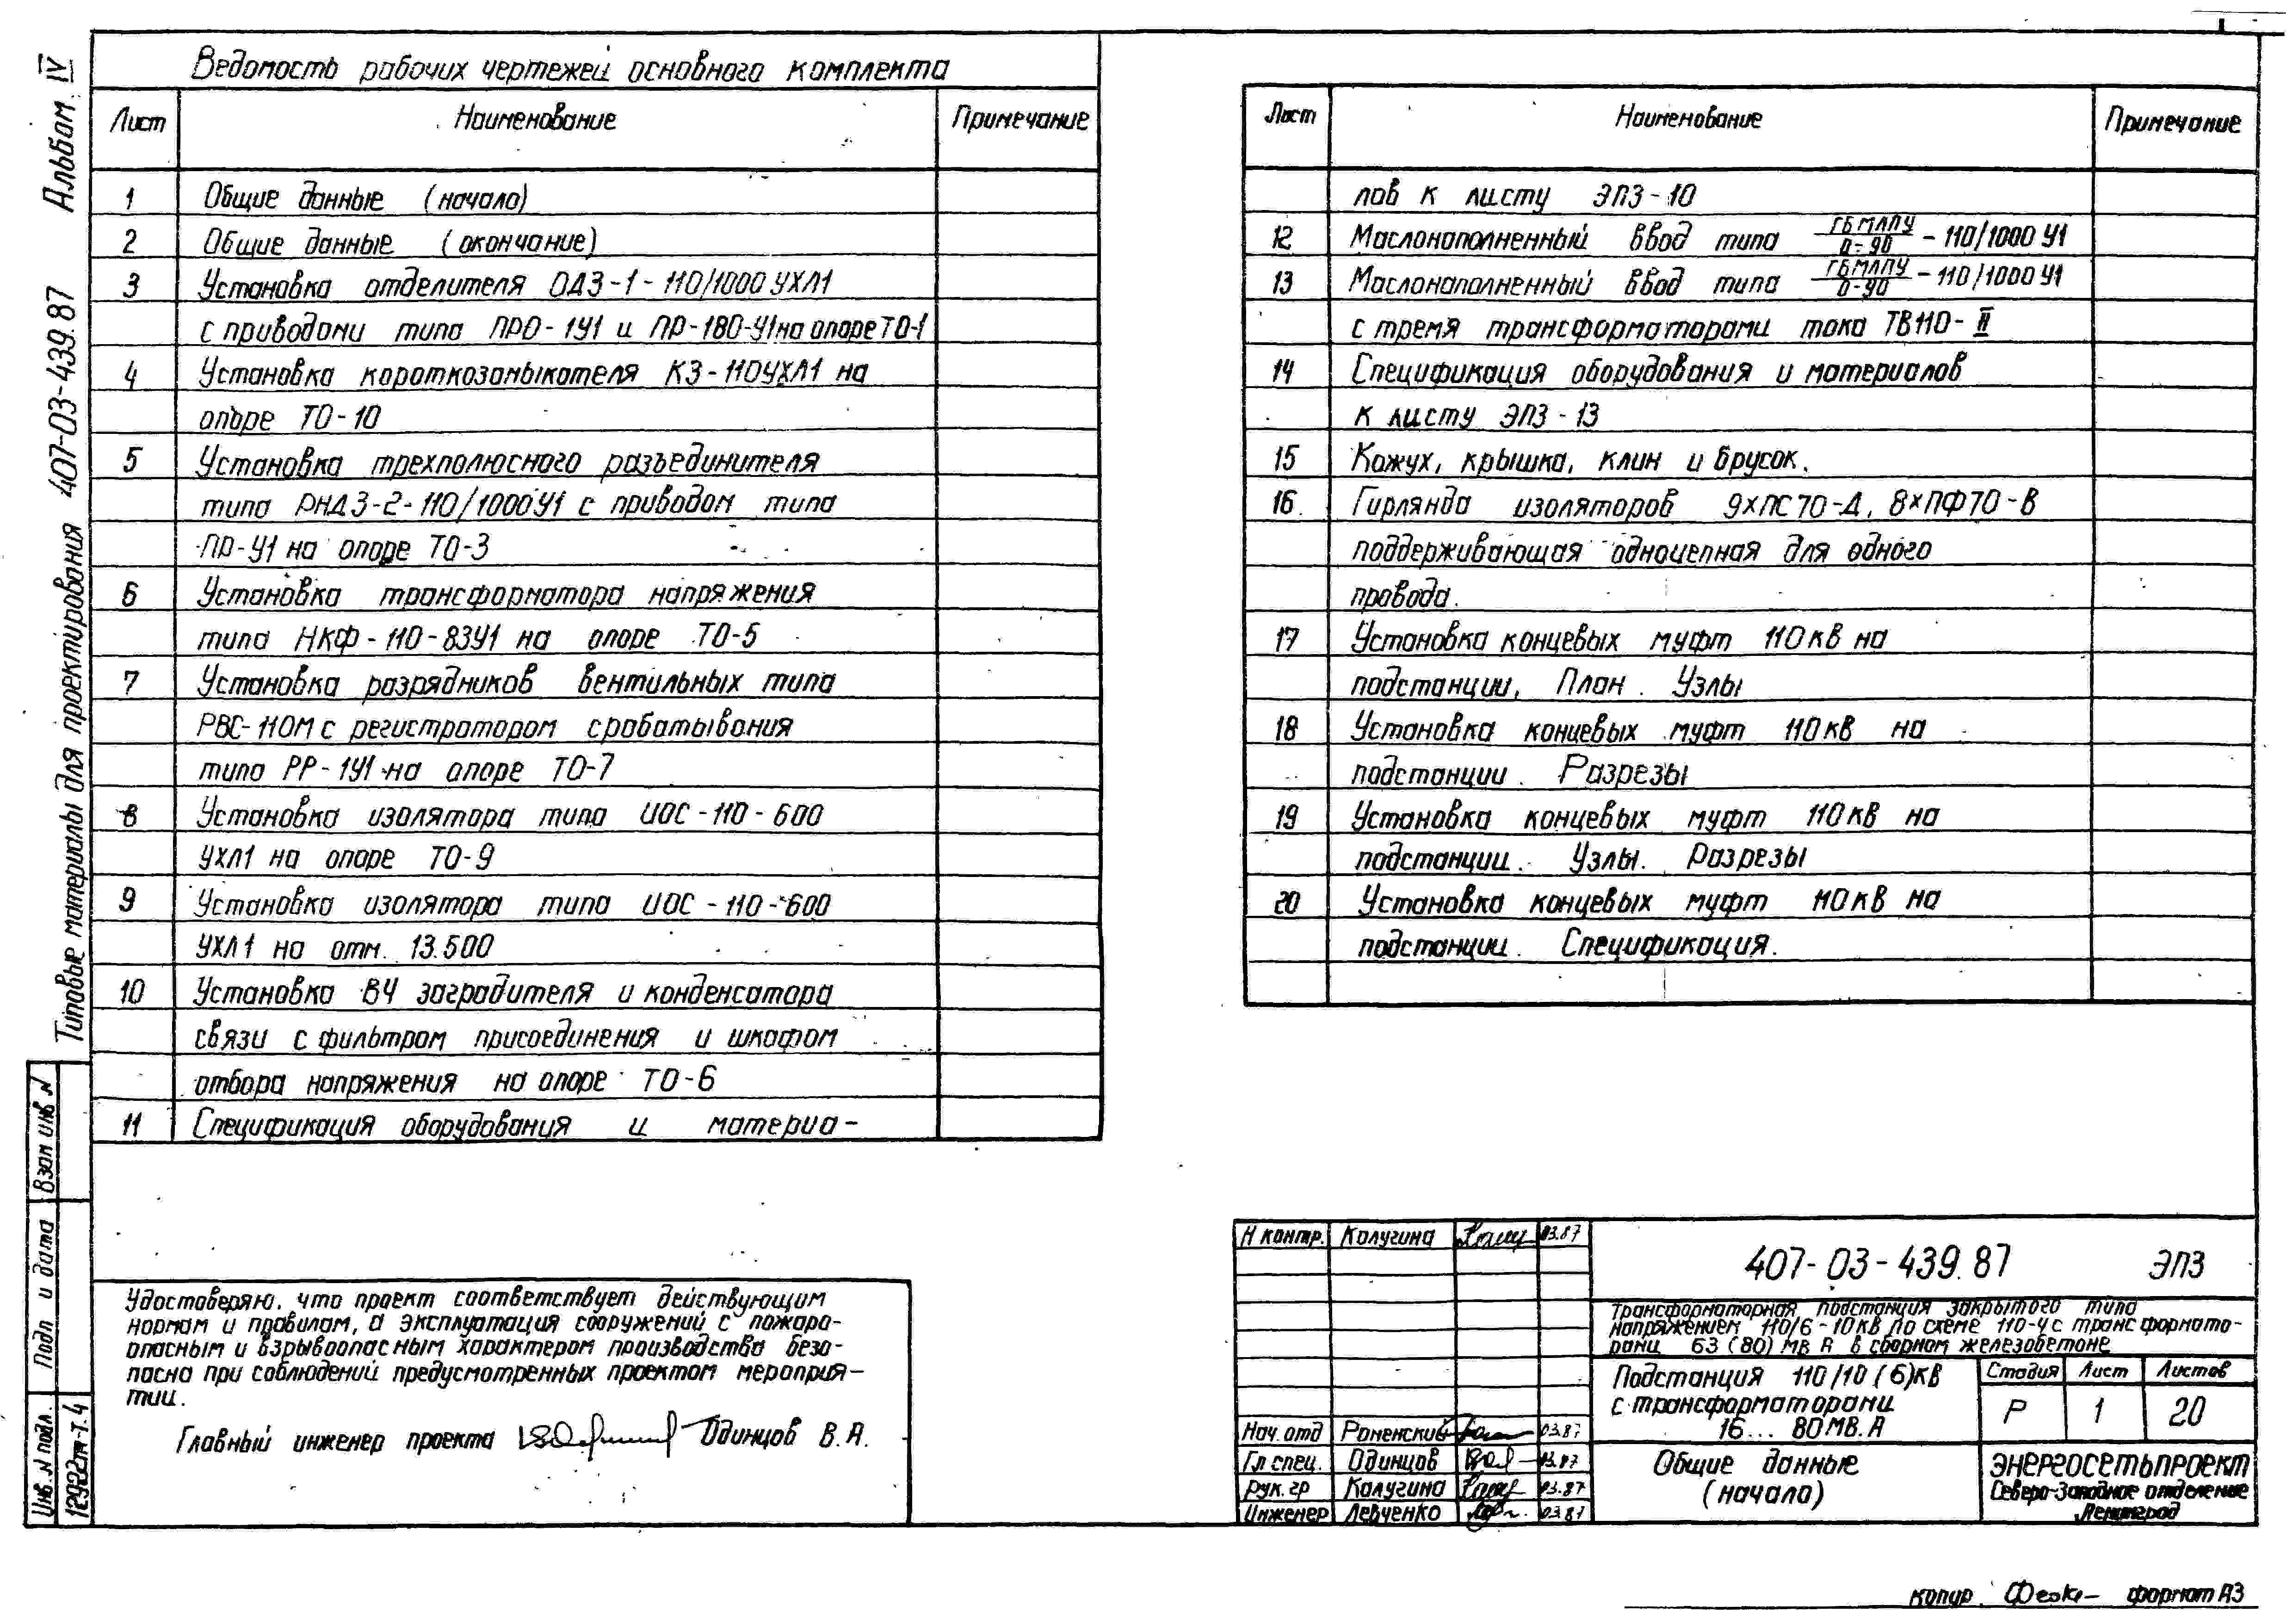 Альбом IV
407-03-439.87
Типовые материалы для проектирования
Ведомость рабочих чертежей основного комплекта
Лист Наименование Примечание
1 Общие данные (начало)
2 Общие данные (окончание)
3 Установка отделителя ОДЗ-1-110/1000 УХЛ1
с приводами типа ПРО-1У1 и ПР-180-У1 на опоре ТО-1
4 Установка короткозамыкателя КЗ-110УХЛ1 на
опоре ТО-10
5 Установка трехполюсного разъединителя
типа РНДЗ-2-110/1000У1 с приводом типа
ПР-У1 на опоре ТО-3
6 Установка трансформатора напряжения
типа НКФ-110-83У1 на опоре ТО-5
7 Установка разрядников вентильных типа
РВС-110М с регистратором срабатывания
типа РР-1У1 на опоре ТО-7
8 Установка изолятора типа ИОС-110-600
УХЛ1 на опоре ТО-9
9 Установка изолятора типа ИОС-110-600
УХЛ1 на отм. 13.500
10 Установка ВЧ заградителя и конденсатора
связи с фильтром присоединения и шкафом
отбора напряжения на опоре ТО-6
11 Спецификация оборудования и материа-
Лист Наименование Примечание
лов к листу ЭП3-10
12 Маслонаполненный ввод типа ГБМЛПУ/0-90 - 110/1000 У1
13 Маслонаполненный ввод типа ГБМЛПУ/0-90 - 110/1000 У1
с тремя трансформаторами тока ТВ110-II
14 Спецификация оборудования и материалов
к листу ЭП3-13
15 Кожух, крышка, клин и брусок.
16 Гирлянда изоляторов 9×ПС70-Д, 8×ПФ70-В
поддерживающая одноцепная для одного
провода.
17 Установка концевых муфт 110кВ на
подстанции. План. Узлы
18 Установка концевых муфт 110кВ на
подстанции. Разрезы
19 Установка концевых муфт 110кВ на
подстанции. Узлы. Разрезы
20 Установка концевых муфт 110кВ на
подстанции. Спецификация.
Взам инв N
Подп и дата
Инв. N подл.
12922тм-т.4
Удостоверяю, что проект соответствует действующим
нормам и правилам, а эксплуатация сооружений с пожаро-
опасным и взрывоопасным характером производства безо-
пасна при соблюдений предусмотренных проектом мероприя-
тии.
Главный инженер проекта Одинцов В.А.
Н контр. Калугина 03.87
Нач.отд Роменский 03.87
Гл спец. Одинцов 03.87
Рук. гр Калугина 03.87
Инженер Левченко 03.87
407-03-439.87 ЭП3
Трансформаторная подстанция закрытого типа
напряжением 110/6-10кВ по схеме 110-4 с трансформато-
рами 63 (80) МВ А в сборном железобетоне
Подстанция 110/10 (6)кВ
с трансформаторами
16... 80МВ.А
Стадия Лист Листов
Р 1 20
Общие данные
(начало)
ЭНЕРГОСЕТЬПРОЕКТ
Северо-Западное отделение
Ленинград
копир. формат А3